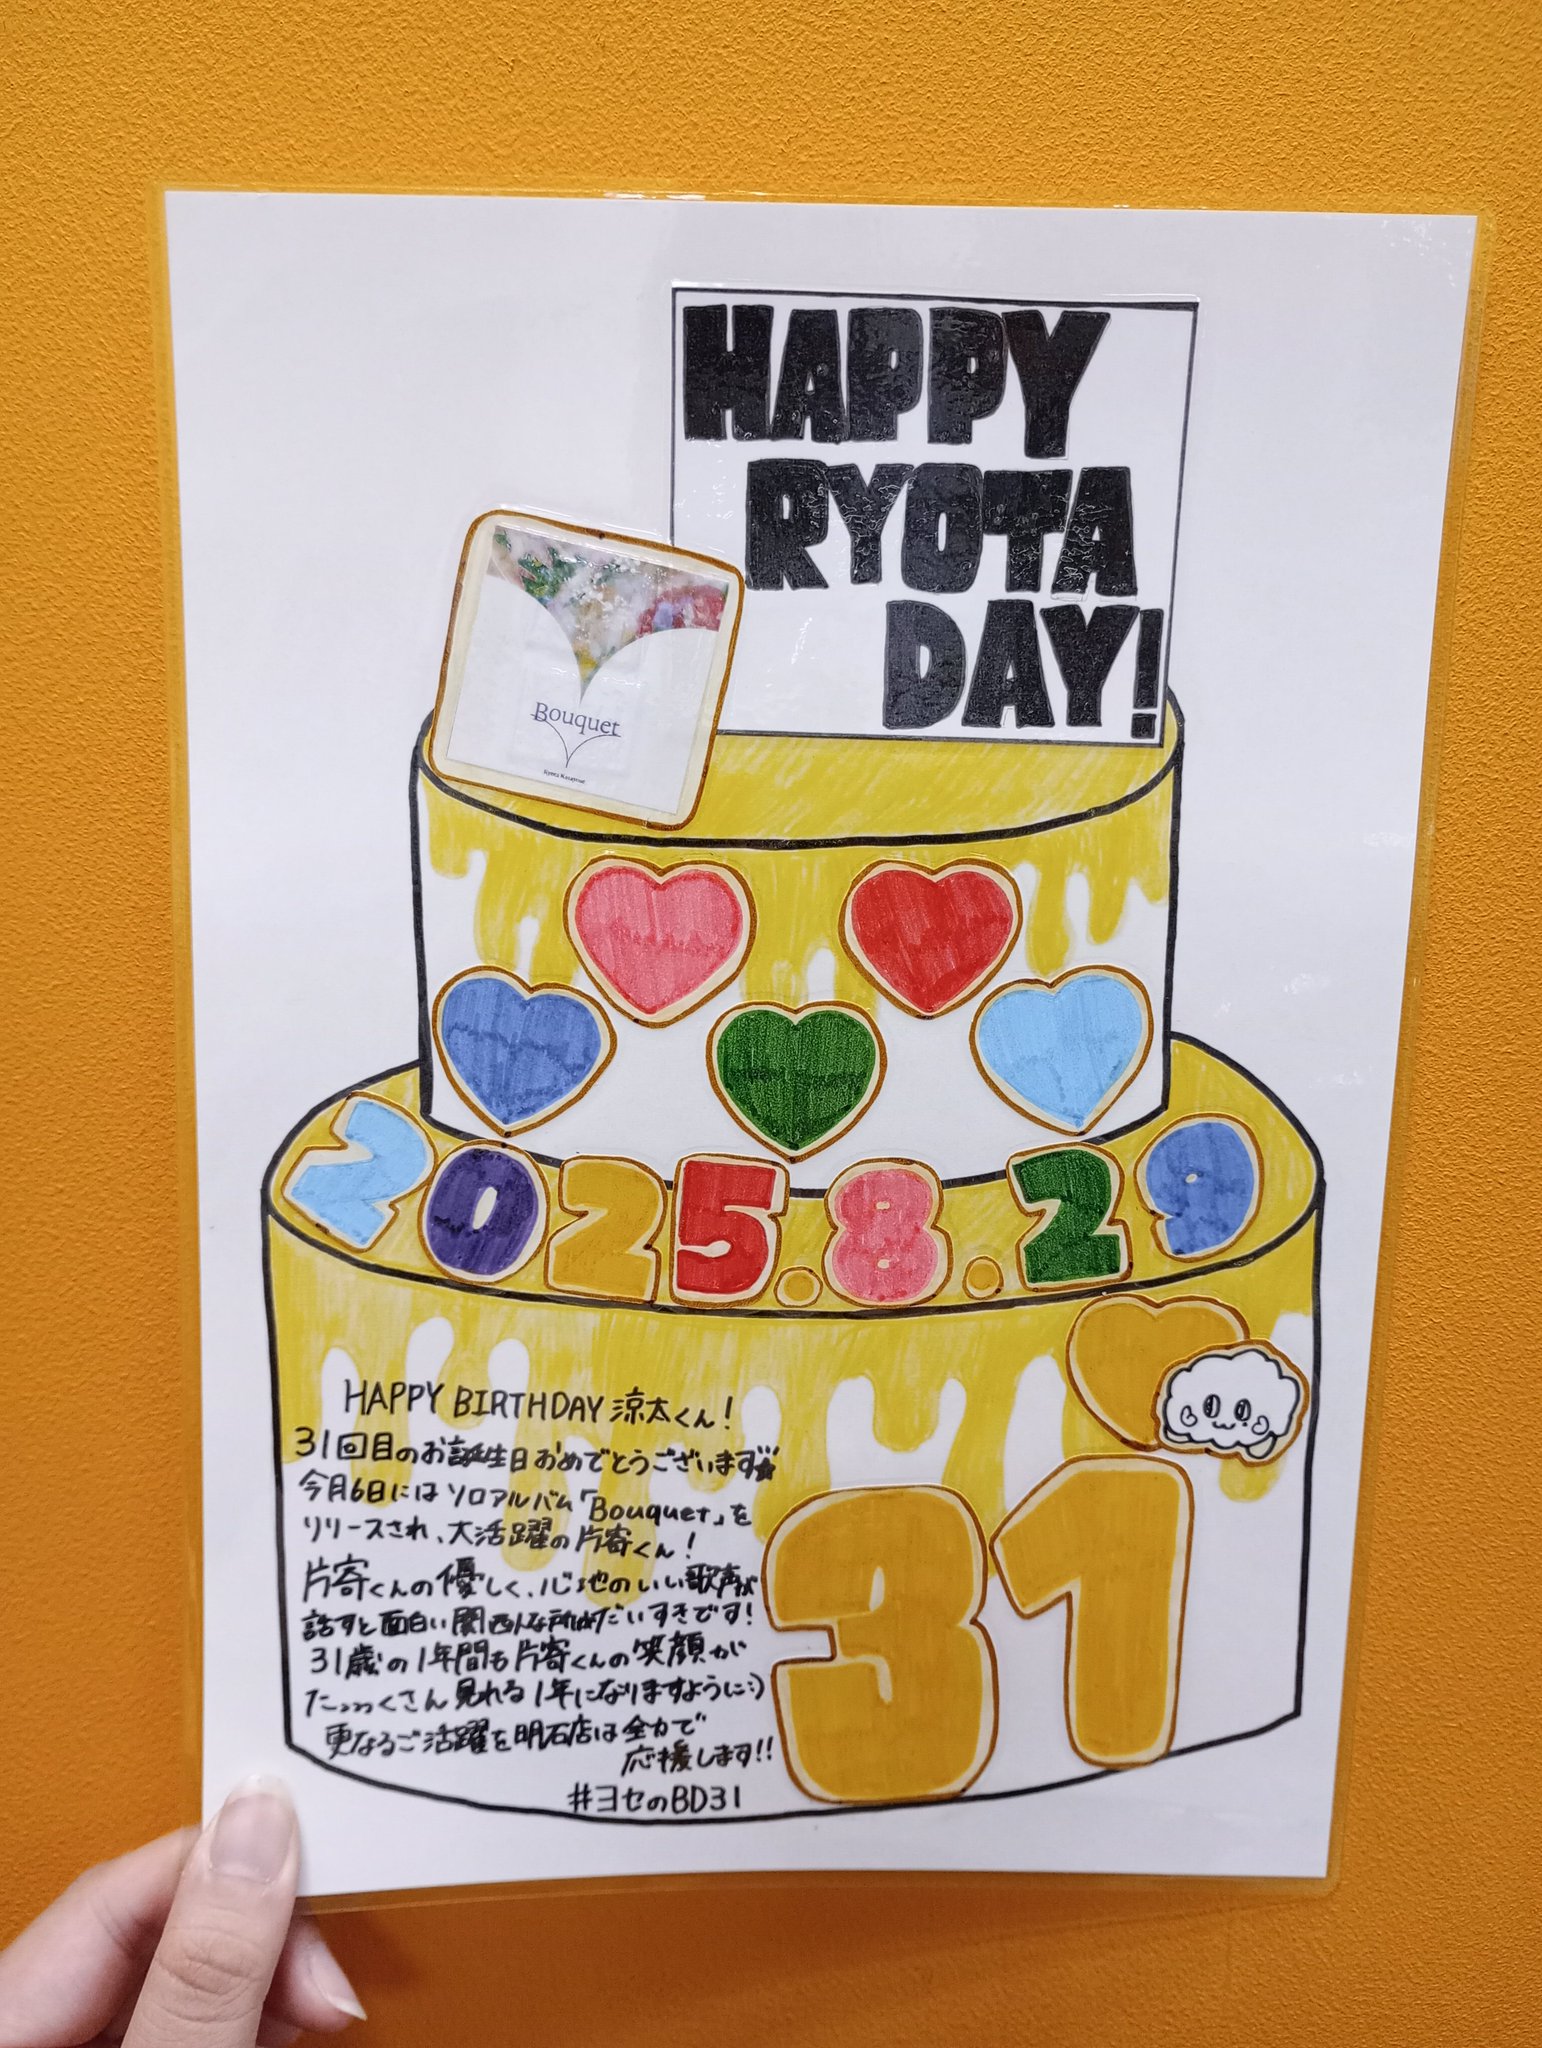 HAPPY
RYOTA
DAY!
Bouquet
Ryota Katayose
2025.8.29
HAPPY BIRTHDAY 涼太くん!
31回目のお誕生日おめでとうございます
今月6日にはソロアルバム「Bouquet」を
リリースされ、大活躍の片寄くん!
片寄くんの優しく、心地のいい歌声が
話すと面白い関西人な所がだいすきです!
31歳の1年間も片寄くんの笑顔が
たっっっくさん見れる1年になりますように:)
更なるご活躍を明石店は全力で
応援します!!
#ヨセのBD31
31